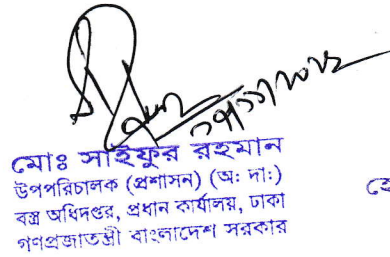 মোঃ সাইফুর রহমান
উপপরিচালক (প্রশাসন) (অ: দা:)
বস্ত্র অধিদপ্তর, প্রধান কার্যালয়, ঢাকা
গণপ্রজাতন্ত্রী বাংলাদেশ সরকার